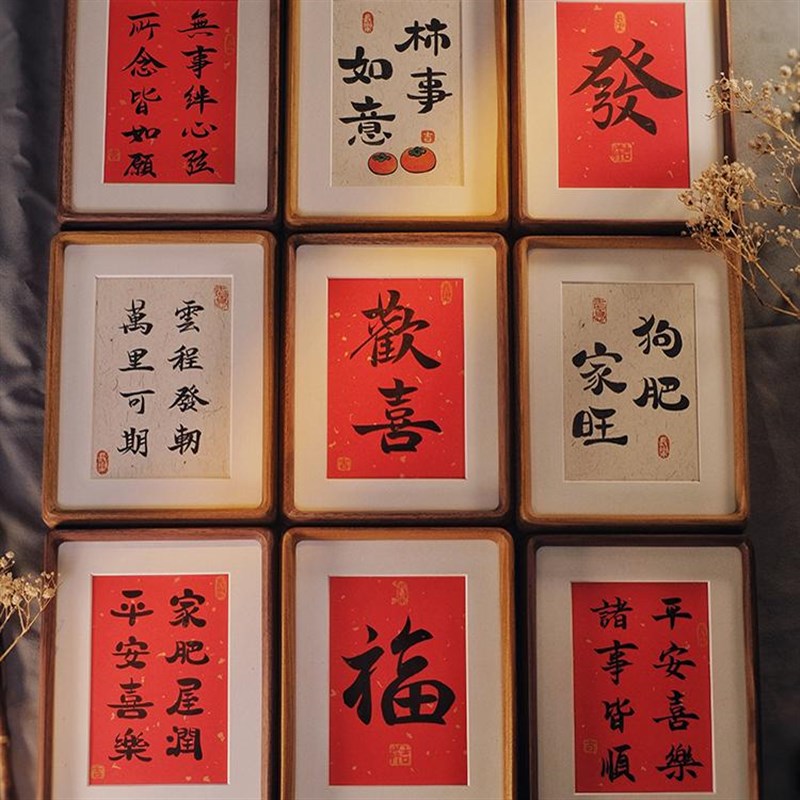 無事絆心弦
所念皆如願
柿事
如意
吉
發
雲程發軔
萬里可期
歡喜
吉
狗肥
家旺
家肥屋潤
平安喜樂
福
平安喜樂
諸事皆順